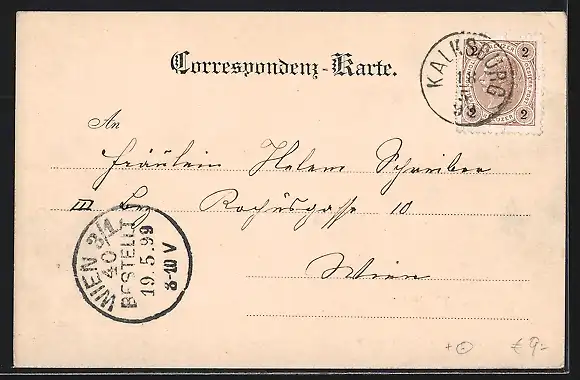 Correspondenz-Karte.
KALKSBURG
18
2 2
2 2
An
Fräulein Helem Schreiber
III Bez Rochusgasse 10
Wien
WIEN 3/1
40
BESTELLT
19.5.99
8-10 V
€ 9-